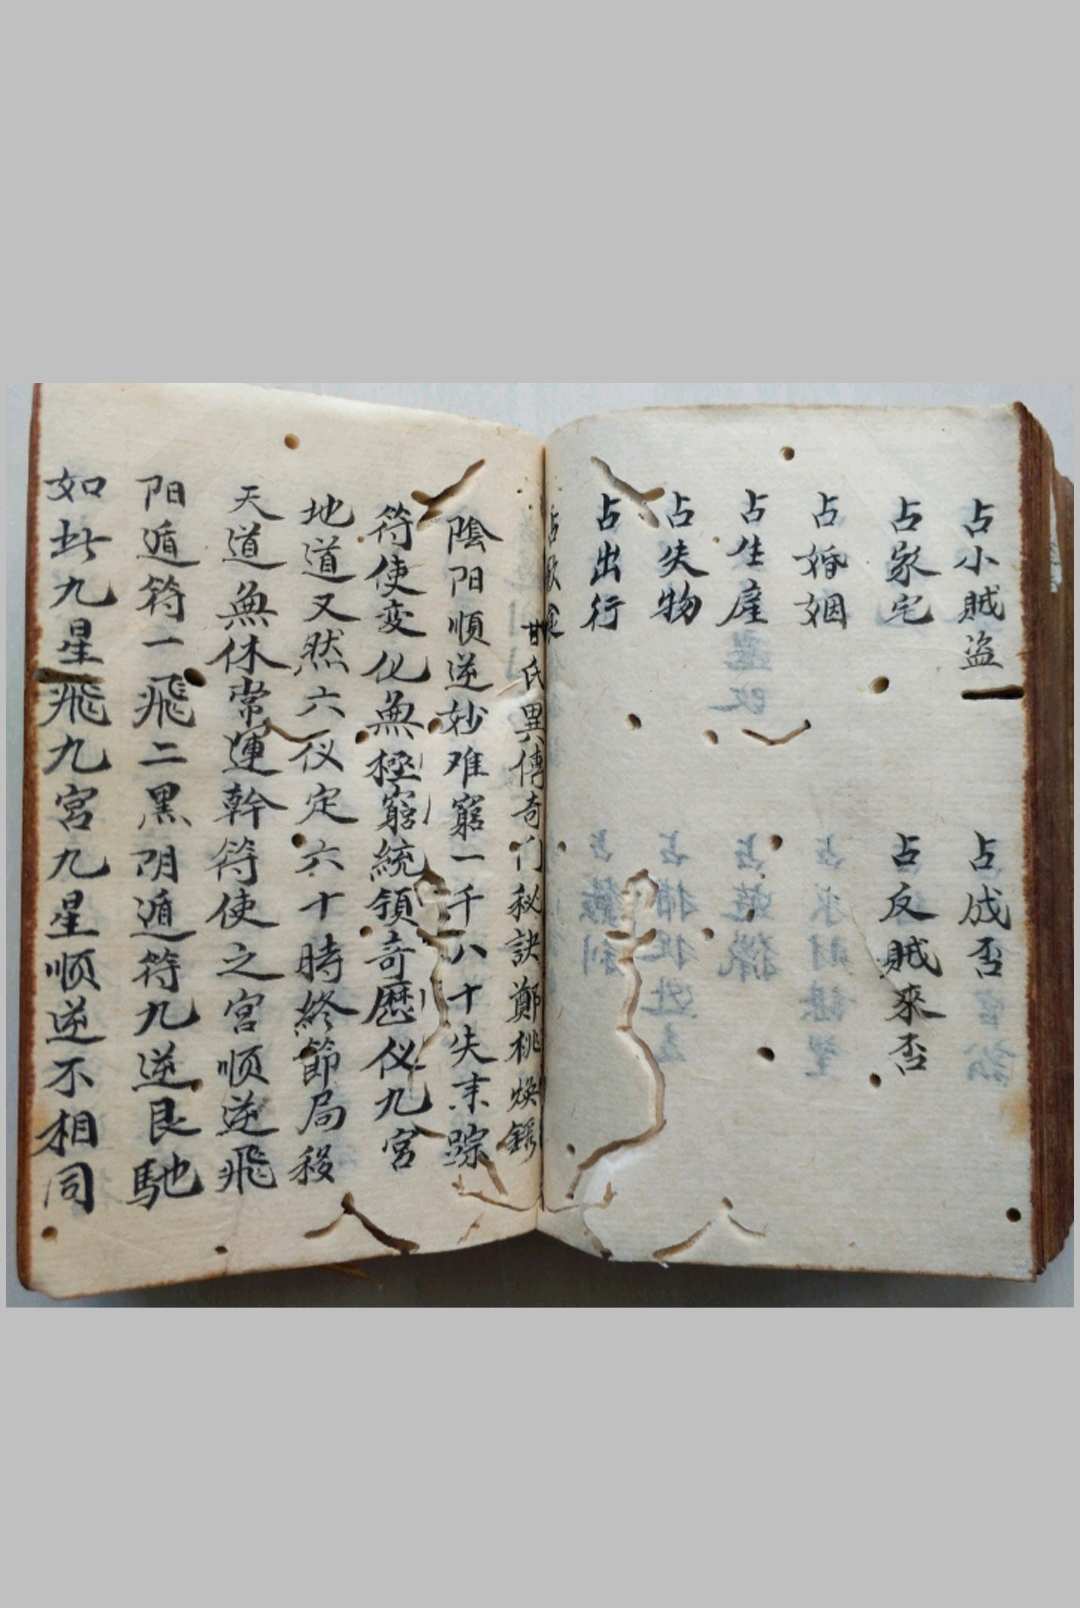 占小賊盜
占成否
占家宅
占反賊來否
占婚姻
占生産
占失物
占出行
占飲食
甘氏異傳奇门秘訣鄭桃焕錄
陰阳順逆妙难窮一千八十失来踪
符使变化無極窮統領奇歷仪九宮
地道又然六仪定六十時終節局移
天道無休常運幹符使之宮順逆飛
阳遁符一飛二黑阴遁符九逆艮馳
如此九星飛九宮九星順逆不相同